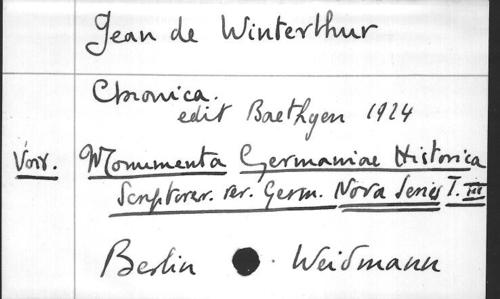 Jean de Winterthur
Chronica.
edit Baethgen 1924
Voir. Monumenta Germaniae Historica
Scriptorer. rer. Germ. Nova Series T. III
Berlin . Weidmann